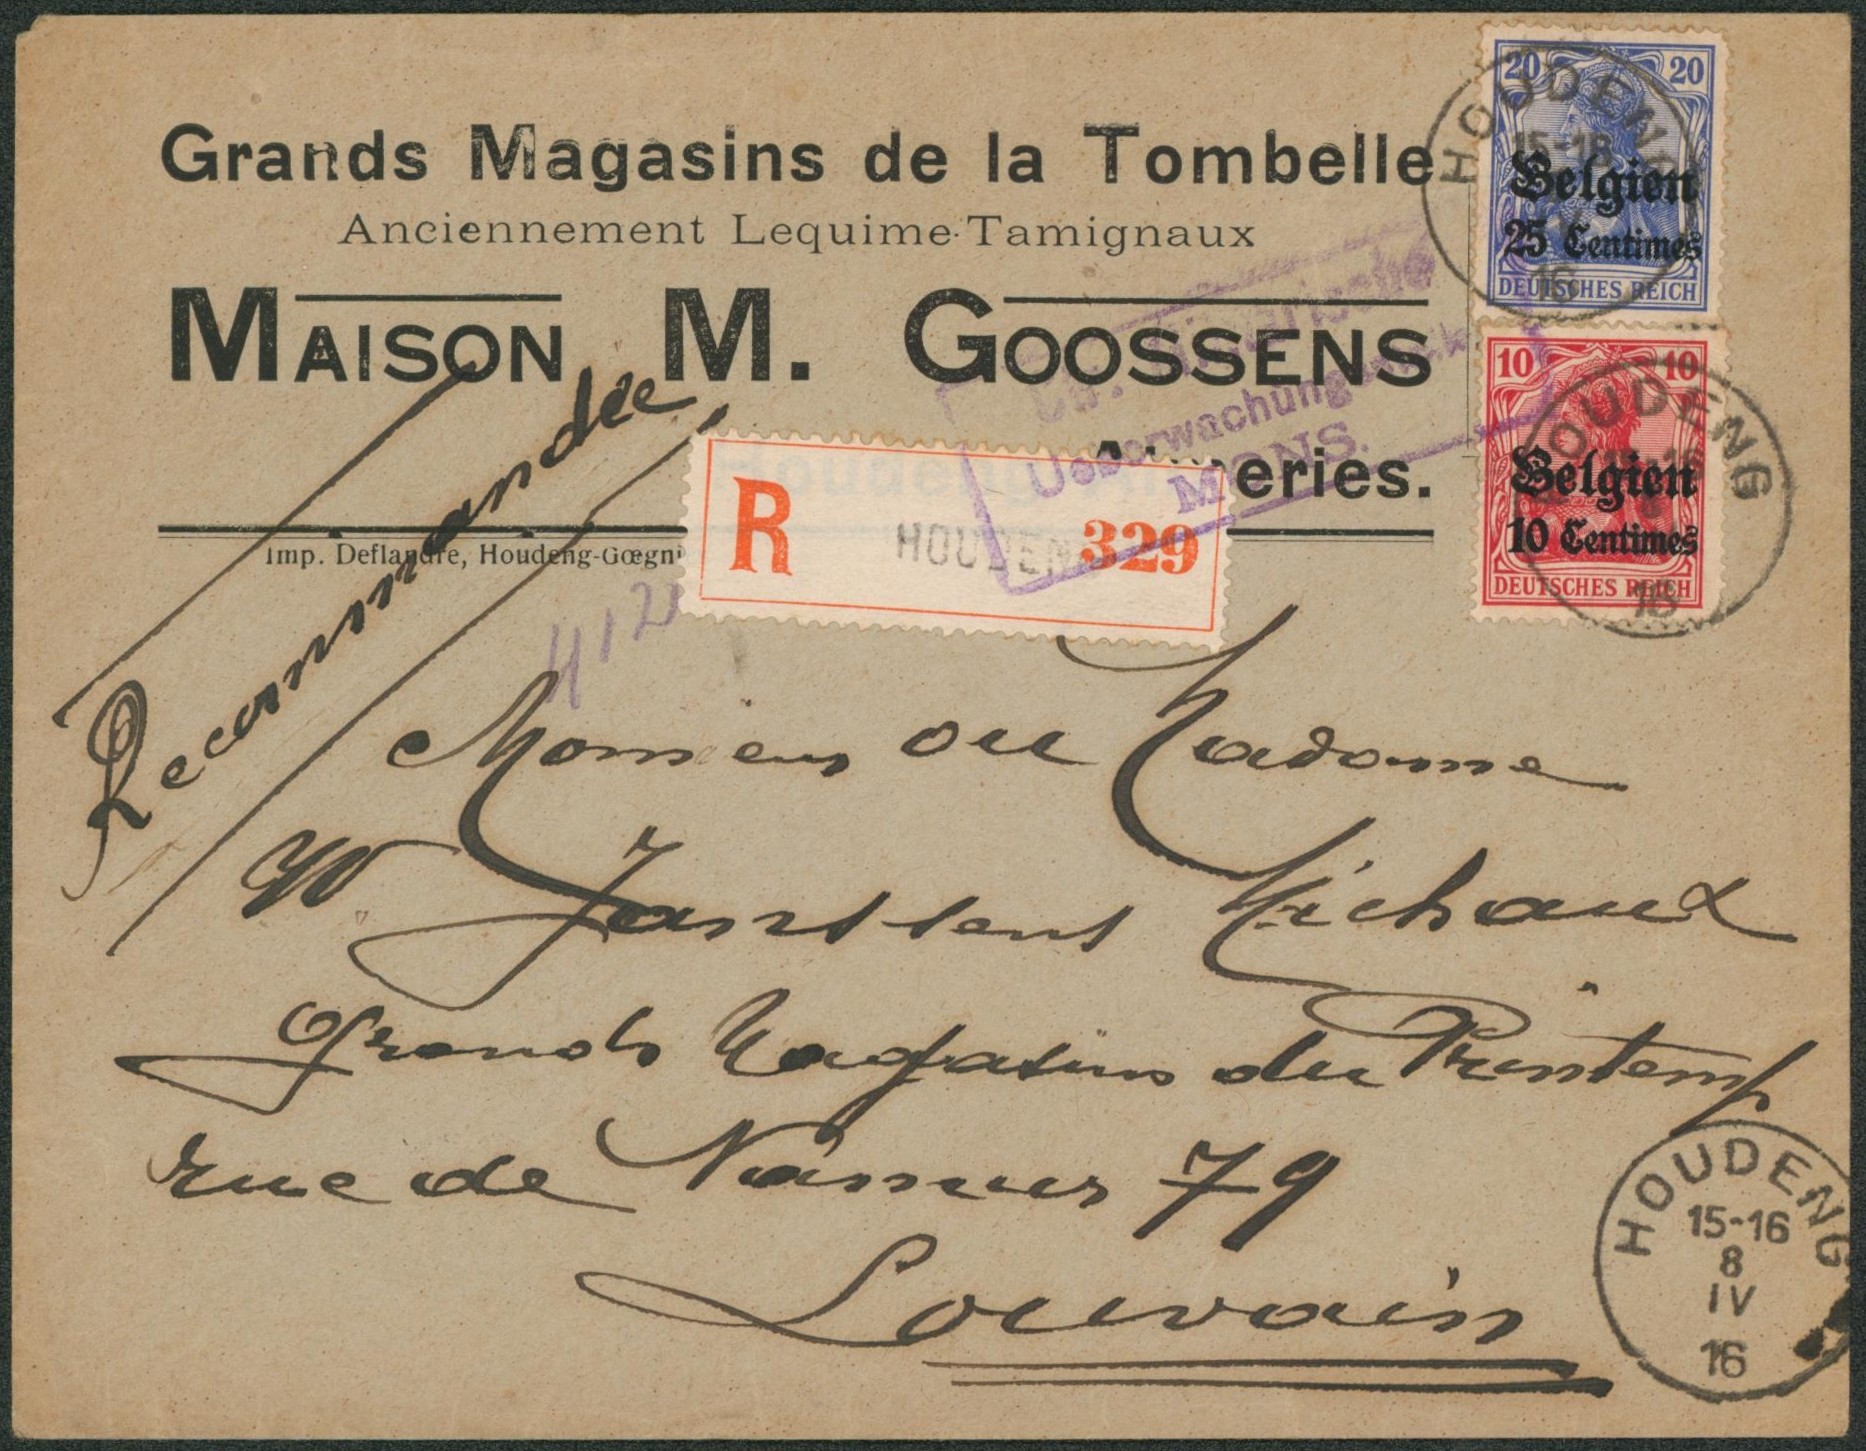 Grands Magasins de la Tombelle
Anciennement Lequime-Tamignaux
MAISON M. GOOSSENS
Houdeng eries.
Imp. Deflandre, Houdeng-Gœgni
Recommandée
R HOUDENG 329
Ueberwachung
MONS.
412
20 20
Belgien
25 Centimes
DEUTSCHES REICH
HOUDENG
15-16
16
10 10
Belgien
10 Centimes
DEUTSCHES REICH
HOUDENG
16
Monsieur ou Madame
Janssens Michaux
Grands Magasins du Printemps
rue de Namur 79
Louvain
HOUDENG
15-16
8
IV
16